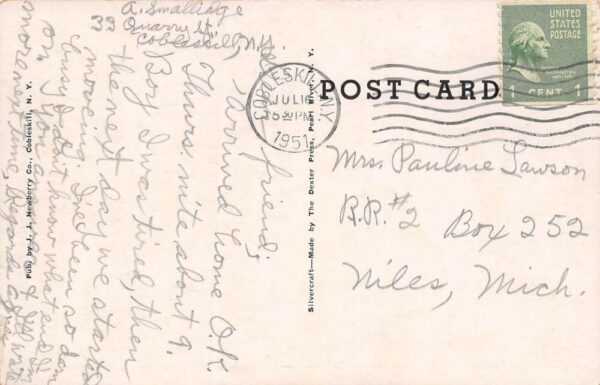 A. Smallidge
33 Quarry St.,
Cobleskill, N.Y.
Dear friend;
Arrived home O.K.
Thurs. nite about 9.
Boy I was tired, then
the next day we started
moving. I've been so darn
busy I don't know what end I'm
on. You
more next time, Regards
POST CARD
UNITED
STATES
POSTAGE
1 CENT 1
COBLESKILL N.Y.
JUL 16
5 30 PM
1951
Mrs. Pauline Lawson
R.R. #2
Box 252
Niles, Mich.
Silvercraft—Made by The Dexter Press, Pearl River, N. Y.
Pub. by J. J. Newberry Co., Cobleskill, N. Y.